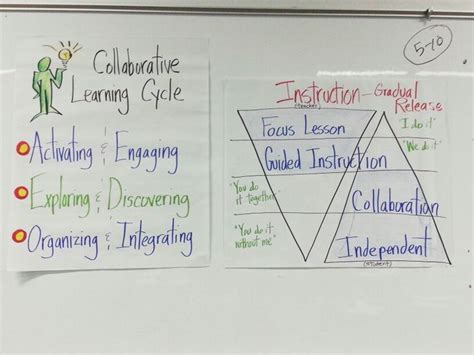 Collaborative
Learning Cycle
Activating & Engaging
Exploring & Discovering
Organizing & Integrating
5-10
Instruction - Gradual
Release
(teacher)
Focus Lesson
"I do it"
Guided Instruction
"We do it"
"You do
it together"
Collaboration
"You do it
without me"
Independent
(student)